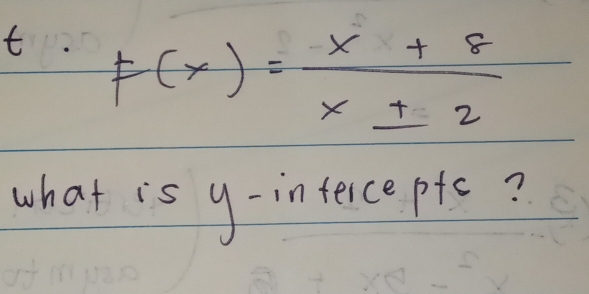 t. F(x) = (x + 8) / (x ± 2)
what is y-intercepts ?